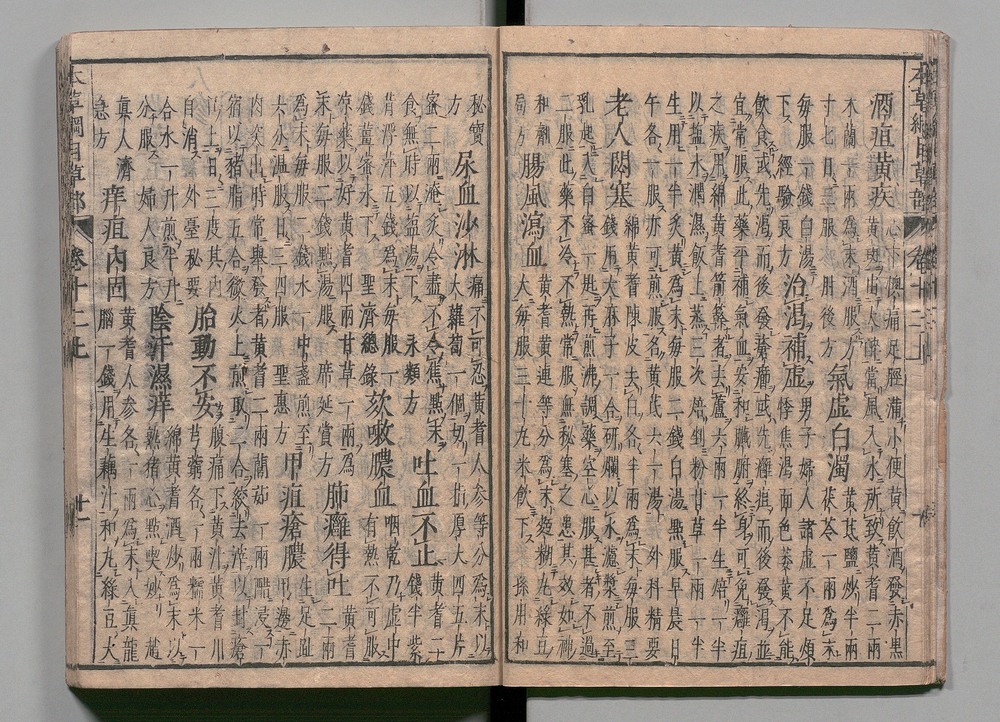 酒疸黄疾 心下懊痛足脛滿小便黄飲酒發赤黒
黄斑由大醉當風入水所致黄耆二兩
木蘭一兩爲末酒服方
寸七日三服 肘後方 氣虚白濁 黄芪鹽炒半兩
茯苓一兩爲末
毎服一錢白湯
下 經驗良方 治渇補虚 男子婦人諸虚不足煩
悸焦渇面色萎黄不能
飲食或先渇而後發瘡癤或先癰疽而後發渇並
宜常服此藥平補氣血安和臟腑終身可免癰疽
之疾用綿黄耆箭簳者去蘆六兩一半生焙一半
以鹽水潤濕飯上蒸三次焙剉粉甘草一兩一半
生用一半炙黄爲末毎服二錢白湯點服早晨日
午各一服亦可煎服名黄芪六一湯 外科精要
老人悶塞 綿黄耆陳皮去白各半兩爲末毎服三
錢用大麻子一合研爛以水濾漿煎至
乳起入白蜜一匙再煎沸調藥空心服甚者不過
二服此藥不冷不熱常服無秘塞之患其效如神
和劑
局方 腸風瀉血 黄耆黄連等分爲末麪糊丸緑豆
大毎服三十丸米飲下 孫用和
秘寶
方 尿血沙淋 痛不可忍黄耆人參等分爲末以
大蘿蔔一個切一指厚大四五片
蜜二兩淹炙令盡不令焦點末
食無時以鹽湯下 永類方 吐血不止 黄耆二錢半紫
背浮萍五錢爲末毎服一
錢薑蜜水下 聖濟總録 欬嗽膿血 咽乾乃虚中
有熱不可服
凉藥以好黄耆四兩甘草一兩爲
末毎服二錢點湯服 席延賞方 肺癰得吐 黄耆
二兩
爲末毎服二錢水一中盞煎至
六分温服日三四服 聖惠方 甲疽瘡膿 生足趾
甲邊赤
肉突出時常舉發者黄耆二兩䕡茹一兩醋浸一
宿以豬脂五合微火上煎取二合絞去滓以封瘡
口上日三度其肉
自消 外臺秘要 胎動不安 腹痛下黄汁黄耆川
芎藭各一兩糯米一
合水一升煎半升
分服 婦人良方 陰汗濕痒 綿黄耆酒炒爲末以
熟豬心點喫妙 趙
真人濟
急方 癰疽内固 黄耆人參各一兩爲末入真龍
腦一錢用生藕汁和丸緑豆大
本草綱目草部 卷十二上 廿一